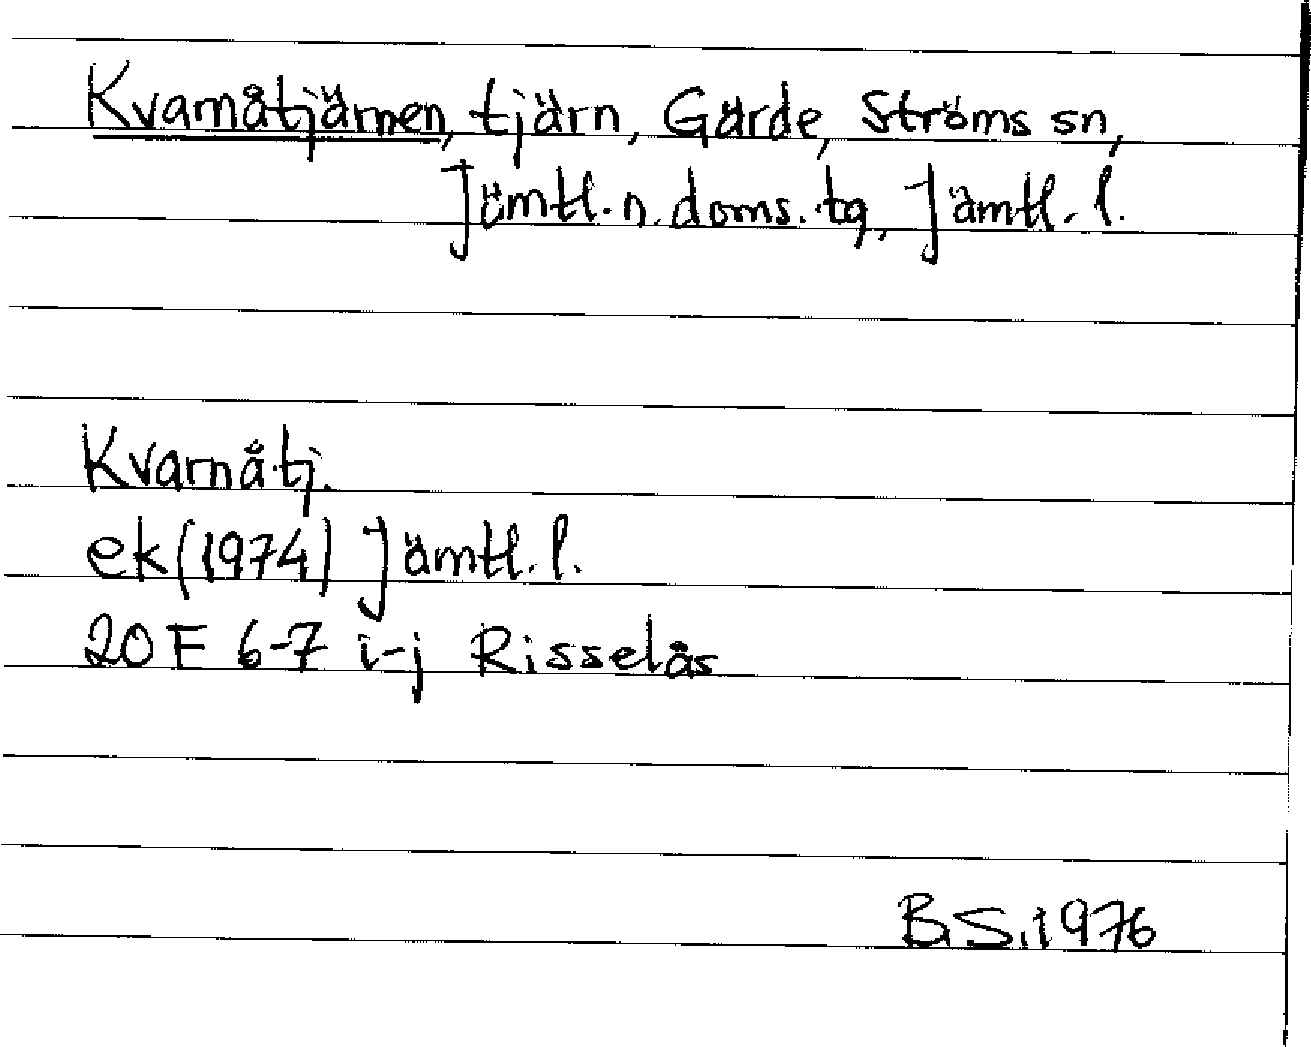 Kvarnåtjärnen, tjärn, Gärde, Ströms sn,
Jämtl. n. doms. tg, Jämtl. l.
Kvarnåtj.
ek (1974) Jämtl. l.
20 E 6-7 i-j Risselås
B.S. 1976